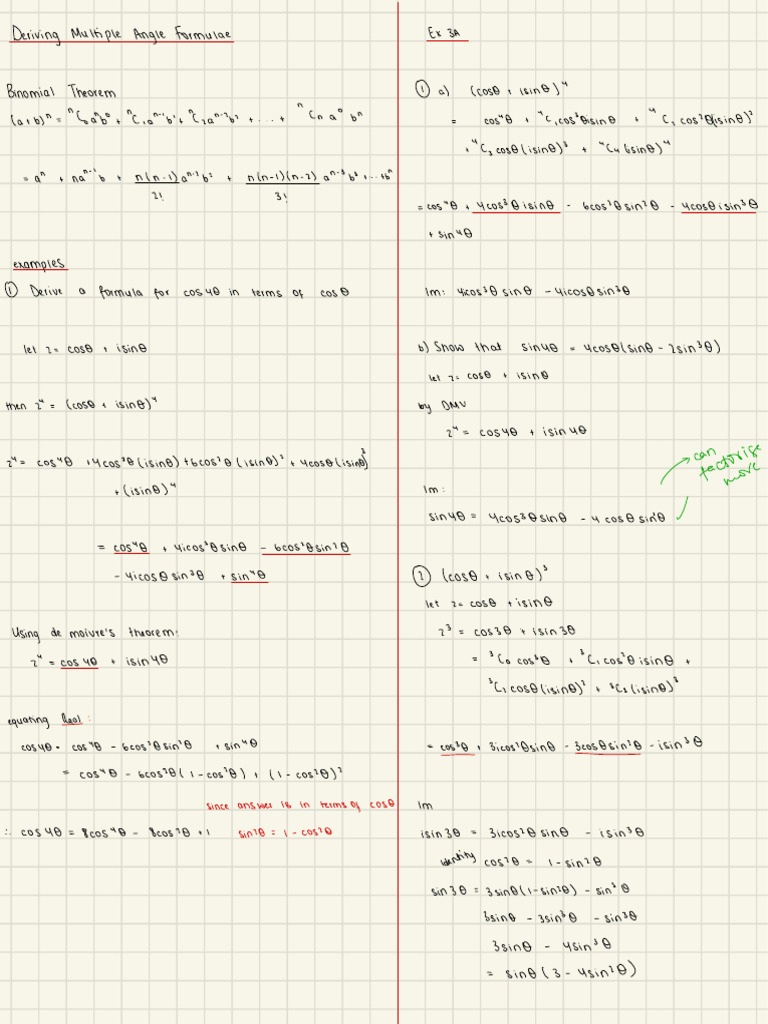 Deriving Multiple Angle Formulae
Binomial Theorem
(a+b)ⁿ = ⁿC₀aⁿb⁰ + ⁿC₁aⁿ⁻¹b¹ + ⁿC₂aⁿ⁻²b² + ... + ⁿCₙa⁰bⁿ
= aⁿ + naⁿ⁻¹b + n(n-1)/2! aⁿ⁻²b² + n(n-1)(n-2)/3! aⁿ⁻³b³ + ... + bⁿ
examples
① Derive a formula for cos4θ in terms of cosθ
let z = cosθ + isinθ
then z⁴ = (cosθ + isinθ)⁴
z⁴ = cos⁴θ + 4cos³θ(isinθ) + 6cos²θ(isinθ)² + 4cosθ(isinθ)³
+ (isinθ)⁴
= cos⁴θ + 4icos³θsinθ - 6cos²θsin²θ
- 4icosθsin³θ + sin⁴θ
Using de moivre's theorem:
z⁴ = cos4θ + isin4θ
equating Real:
cos4θ = cos⁴θ - 6cos²θsin²θ + sin⁴θ
= cos⁴θ - 6cos²θ(1-cos²θ) + (1-cos²θ)²
since answer is in terms of cosθ
∴ cos4θ = 8cos⁴θ - 8cos²θ + 1 sin²θ = 1-cos²θ
Ex 3A
① a) (cosθ + isinθ)⁴
= cos⁴θ + ⁴C₁cos³θisinθ + ⁴C₂cos²θ(isinθ)²
+ ⁴C₃cosθ(isinθ)³ + ⁴C₄(isinθ)⁴
= cos⁴θ + 4cos³θisinθ - 6cos²θsin²θ - 4cosθisin³θ
+ sin4θ
Im: 4icos³θsinθ - 4icosθsin³θ
b) Show that sin4θ = 4cosθ(sinθ - 2sin³θ)
let z = cosθ + isinθ
by DMV
z⁴ = cos4θ + isin4θ
can
factorise
more
Im:
sin4θ = 4cos³θsinθ - 4cosθsin³θ
② (cosθ + isinθ)³
let z = cosθ + isinθ
z³ = cos3θ + isin3θ
= ³C₀cos³θ + ³C₁cos²θisinθ +
³C₂cosθ(isinθ)² + ³C₃(isinθ)³
= cos³θ + 3icos²θsinθ - 3cosθsin²θ - isin³θ
Im
isin3θ = 3icos²θsinθ - isin³θ
identity cos²θ = 1-sin²θ
sin3θ = 3sinθ(1-sin²θ) - sin³θ
3sinθ - 3sin³θ - sin³θ
3sinθ - 4sin³θ
= sinθ(3-4sin²θ)